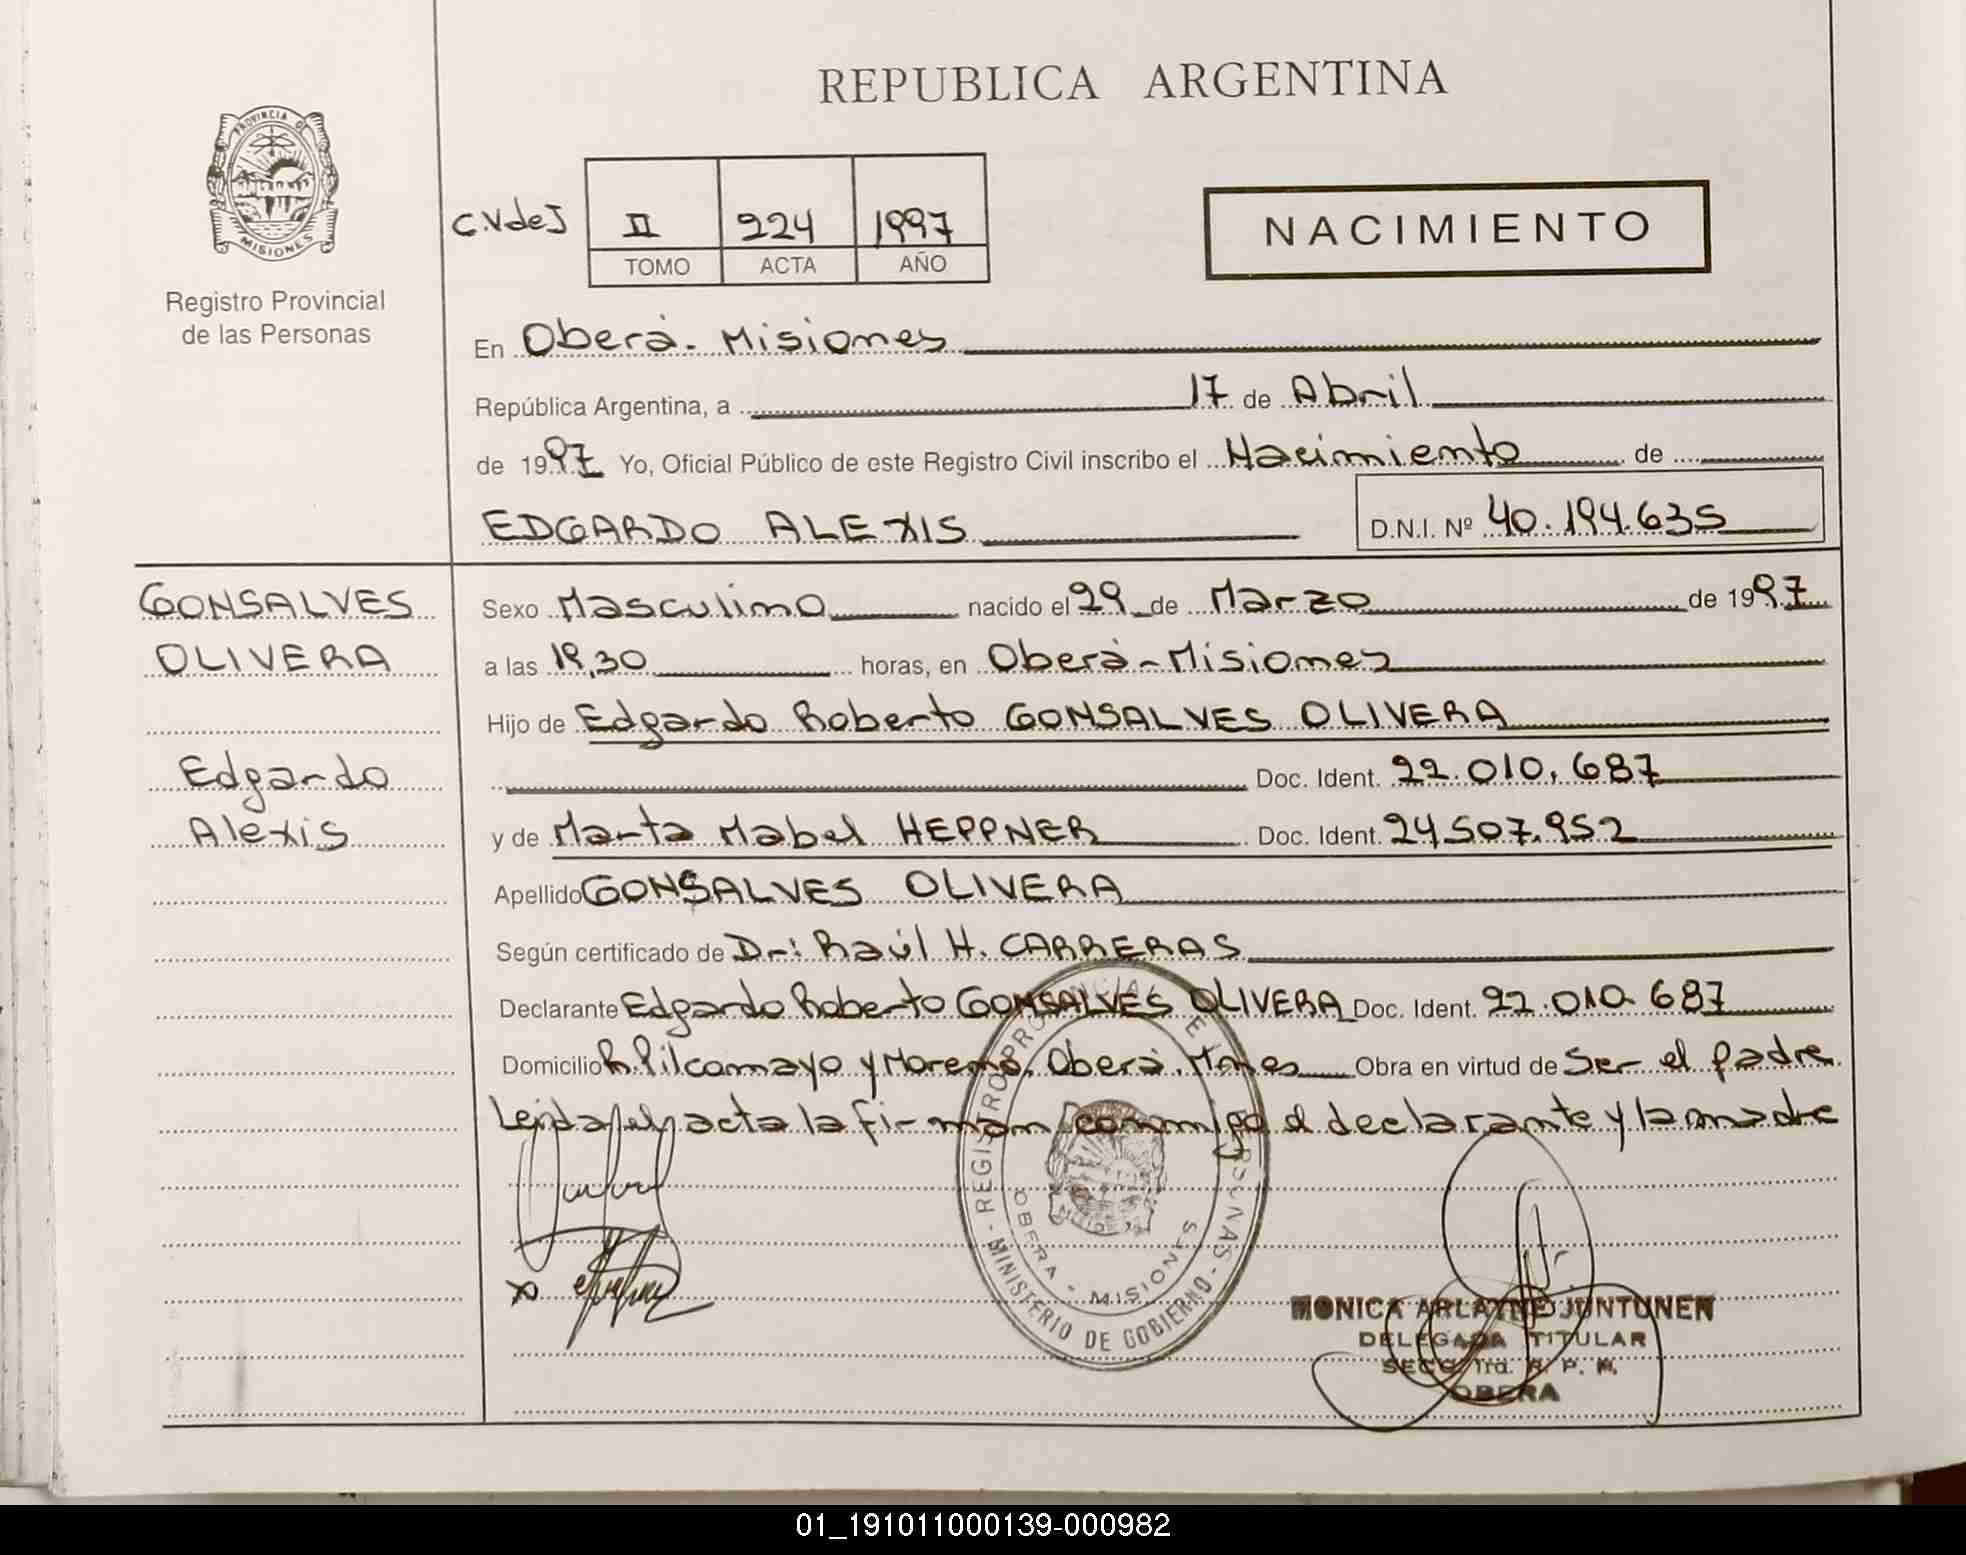 REPUBLICA ARGENTINA
PROVINCIA DE
MISIONES
Registro Provincial
de las Personas
C.VdeJ
II 224 1997
TOMO ACTA AÑO
NACIMIENTO
En Oberà - Misiones
República Argentina, a 17 de Abril
de 1997 Yo, Oficial Público de este Registro Civil inscribo el Nacimiento de
EDGARDO ALEXIS D.N.I. Nº 40.194.635
GONSALVES
OLIVERA
Edgardo
Alexis
Sexo Masculino nacido el 29 de Marzo de 1997
a las 19,30 horas, en Oberà - Misiones
Hijo de Edgardo Roberto GONSALVES OLIVERA
Doc. Ident. 22.010.687
y de Marta Mabel HEPPNER Doc. Ident. 24.507.952
Apellido GONSALVES OLIVERA
Según certificado de Dr: Raúl H. CARRERAS
Declarante Edgardo Roberto GONSALVES OLIVERA Doc. Ident. 22.010.687
Domicilio R. Pilcomayo y Moreno. Oberà. Mnes Obra en virtud de Ser el padre
Leida el acta la firman conmigo el declarante y la madre
REGISTRO PROVINCIAL DE LAS PERSONAS - MINISTERIO DE GOBIERNO -
OBERA - MISIONES
MONICA ARLAYNE JUNTUNEN
DELEGADA TITULAR
SECC. 1ra. R. P. P.
OBERA
01_191011000139-000982